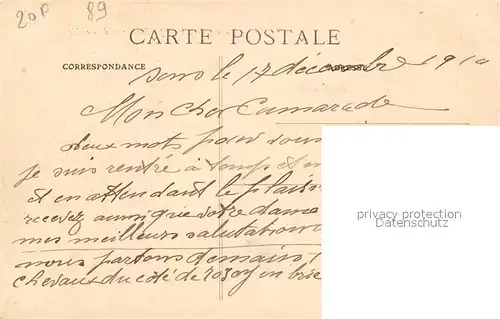 20F 89
CARTE POSTALE
CORRESPONDANCE
le 17 décembre 1910
Mon cher Camarade
deux mots pour vous
je suis rentré à temps et
et en attendant le plaisir
recevez ainsi que votre dame
mes meilleurs salutations
nous partons demains
chevaux du coté de rozoy en brie
privacy protection
Datenschutz